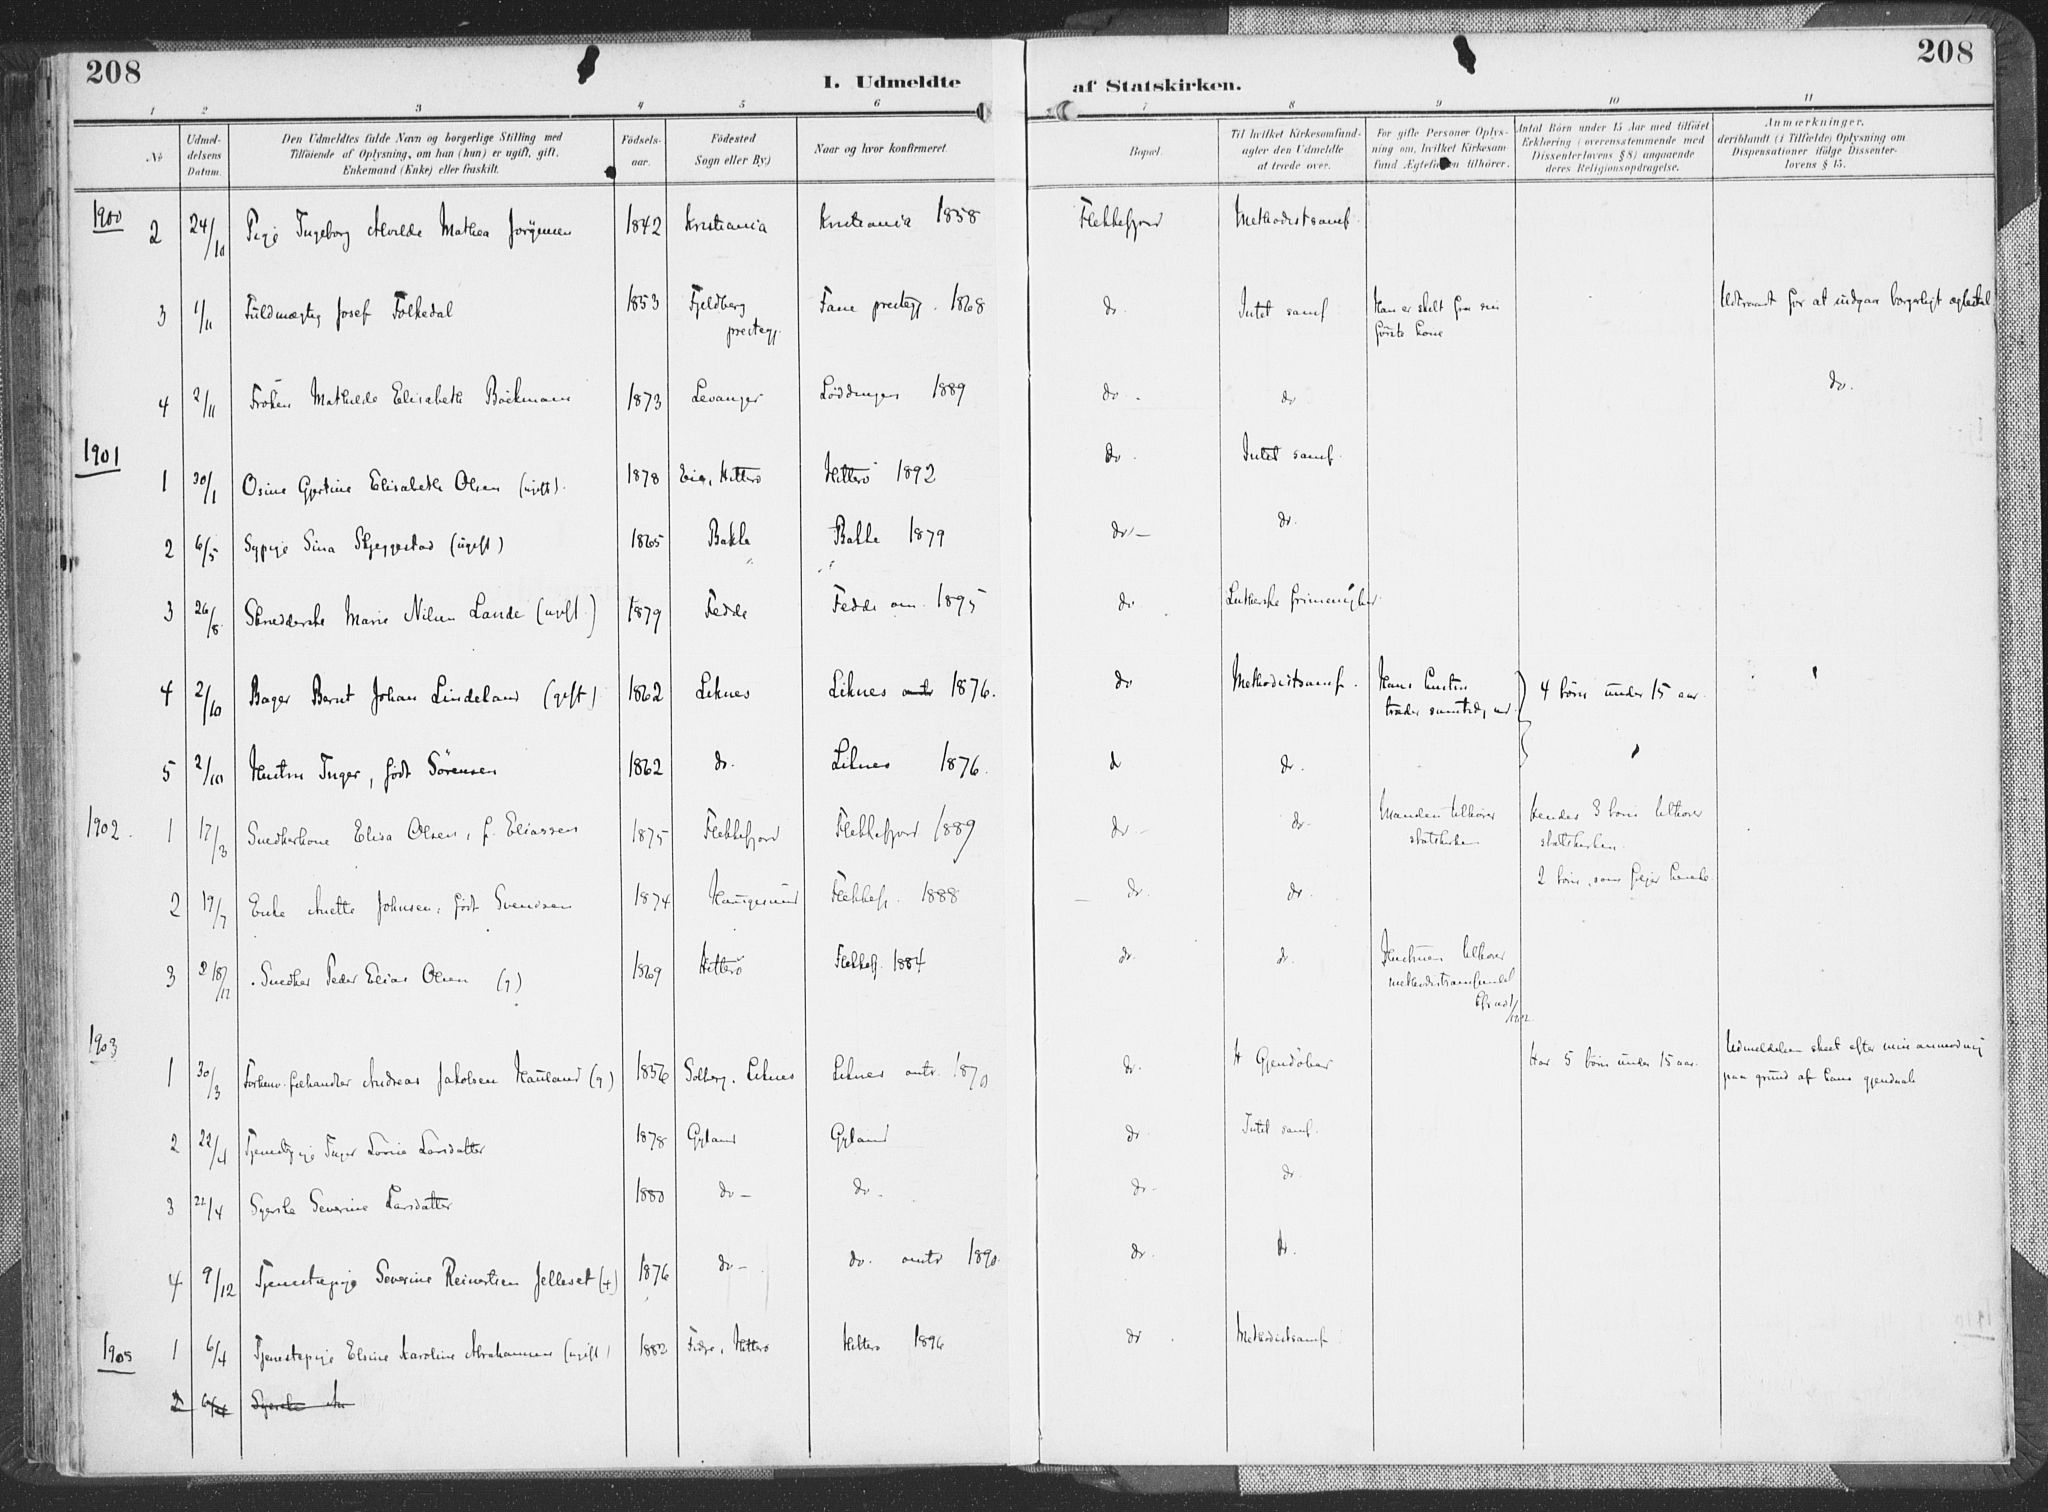 208
I. Udmeldte af Statskirken.
208
1 2 3 4 5 6 7 8 9 10 11
No
Udmeldelsens Datum.
Den Udmeldtes fulde Navn og borgerlige Stilling med
Tilföiende af Oplysning, om han (hun) er ugift, gift,
Enkemand (Enke) eller fraskilt.
Födselsaar.
Födested
Sogn eller By)
Naar og hvor konfirmeret.
Bopæl.
Til hvilket Kirkesamfund
agter den Udmeldte
at træde over.
For gifte Personer Oplysning om, hvilket Kirkesamfund Ægtefællen tilhörer.
Antal Börn under 15 Aar med tilföiet
Erklæring (overensstemmende med
Dissenterlovens § 8) angaaende
deres Religionsopdragelse.
Anmærkninger,
deriblandt (i Tilfælde) Oplysning om
Dispensationer ifölge Dissenterlovens § 15.
1900
2 24/10 Pige Ingeborg Alvilde Mathea Jorgensen 1842 Kristiania Kristiania 1858 Flekkefjord Methodistsamf.
3 1/11 Fuldmægtig Josef Folkedal 1853 Fjeldberg prestegj. Fane prestegj. 1868 do. Intet samf Han er skilt fra sin förste kone Udtraadt for at indgaa borgerligt
4 2/11 Fröken Mathilde Elisabeth Böckmann 1873 Levanger Löddingen 1889 do. do do.
1901
1 30/1 Osine Gjertine Elisabeth Olsen (ugift). 1878 Eie, Hitterö Hitterö 1892 do. Intet samf.
2 6/5 Sypige Sina Skjeggestad (ugift) 1865 Bakke Bakke 1879 do.- do.
3 26/8 Skredderske Marie Nilsen Lande (ugift.) 1879 Fedde Fedde om. 1895 do Lutherske frimenighed
4 2/10 Bager Bernt Johan Lindeland (gift) 1862 Liknes Liknes omtr 1876. do Methodistsamf. Hans hustru træder samtidig ud. 4 börn under 15 aar.
5 2/10 Hustru Inger, född Sörensen 1862 do. Liknes 1876. d do.
1902.
1 17/3 Snedkerkone Elisa Olsen, f. Eliassen 1875 Flekkefjord Flekkefjord 1889 do- do. Manden tilhörer statskirken Hendes 3 börn tilhörer statskirken.
2 19/7 Enke Anette Johnsen, födt Svendsen 1874 Haugesund Flekkefj. 1888 do. do. 2 börn, som fölger hende.
3 18/12 Snedker Peder Elias Olsen (g) 1869 Hitterö Flekkefj. 1884 do. do. Hustruen tilhörer methodistsamfundet
1903
1 30/3 Forhenv. Andreas Jakobsen Hauland (g) 1856 Solberg. Liknes Liknes omtr. 1870 do. H Gjendöber Har 5 börn under 15 aar. Udmeldelsen skeet efter min anmodning paa grund af hans gjendaab
2 22/4 Tjenestepige Inger Larsdatter 1878 Gyland Gyland do. Intet samf.
3 22/4 Syerske Severine Larsdatter 1880 do- do- do- do.
4 9/12 Tjenestepige Severine Reinertsen Jelleset 1876 do- do. omtr 1890. do. do.
1905
1 6/4 Tjenestepige Elsine Karoline Abrahamsen (ugift) 1882 Hitterö Hitterö 1896 do. Methodistsamf
2 6/4 Syerske An